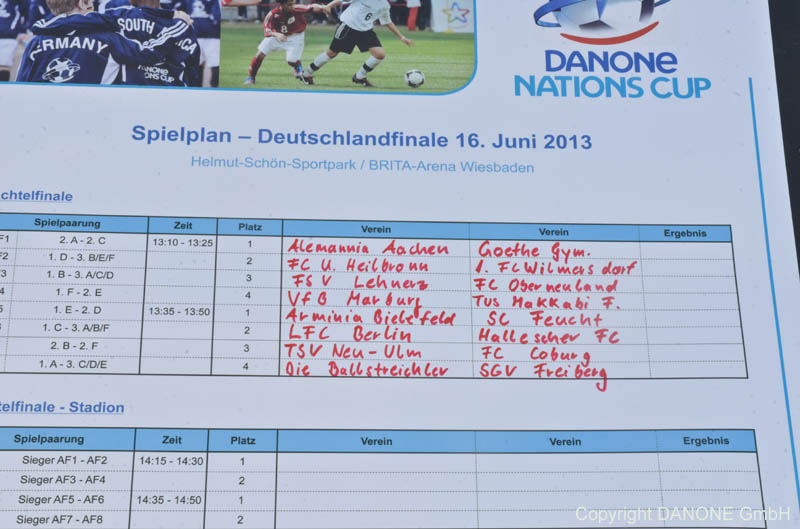 GERMANY
SOUTH
AFRICA
DANONE
NATIONS CUP
8
6
DANONE
NATIONS CUP
Spielplan – Deutschlandfinale 16. Juni 2013
Helmut-Schön-Sportpark / BRITA-Arena Wiesbaden
chtelfinale
Spielpaarung Zeit Platz Verein Verein Ergebnis
F1 2. A - 2. C 13:10 - 13:25 1 Alemannia Aachen Goethe Gym.
F2 1. D - 3. B/E/F 2 FC U. Heilbronn 1. FC Wilmersdorf
3 1. B - 3. A/C/D 3 FSV Lehnerz FC Oberneuland
4 1. F - 2. E 4 VfB Marburg Tus Makkabi F.
5 1. E - 2. D 13:35 - 13:50 1 Arminia Bielefeld SC Feucht
1. C - 3. A/B/F 2 LFC Berlin Hallescher FC
2. B - 2. F 3 TSV Neu-Ulm FC Coburg
1. A - 3. C/D/E 4 Die Ballstreichler SGV Freiberg
telfinale - Stadion
Spielpaarung Zeit Platz Verein Verein Ergebnis
Sieger AF1 - AF2 14:15 - 14:30 1
Sieger AF3 - AF4 2
Sieger AF5 - AF6 14:35 - 14:50 1
Sieger AF7 - AF8 2
Copyright DANONE GmbH